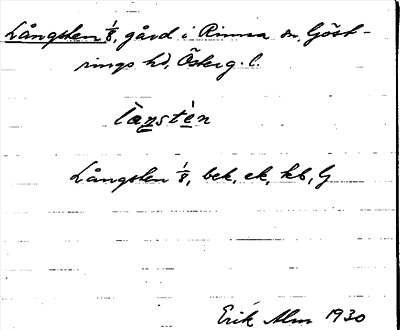 Långsten 1/8, gård i Rinna sn, Göst-
rings hd, Österg. l.
làṉstè̱n
Långsten 1/8, bek, ek, kb, G
Erik Alm 1930